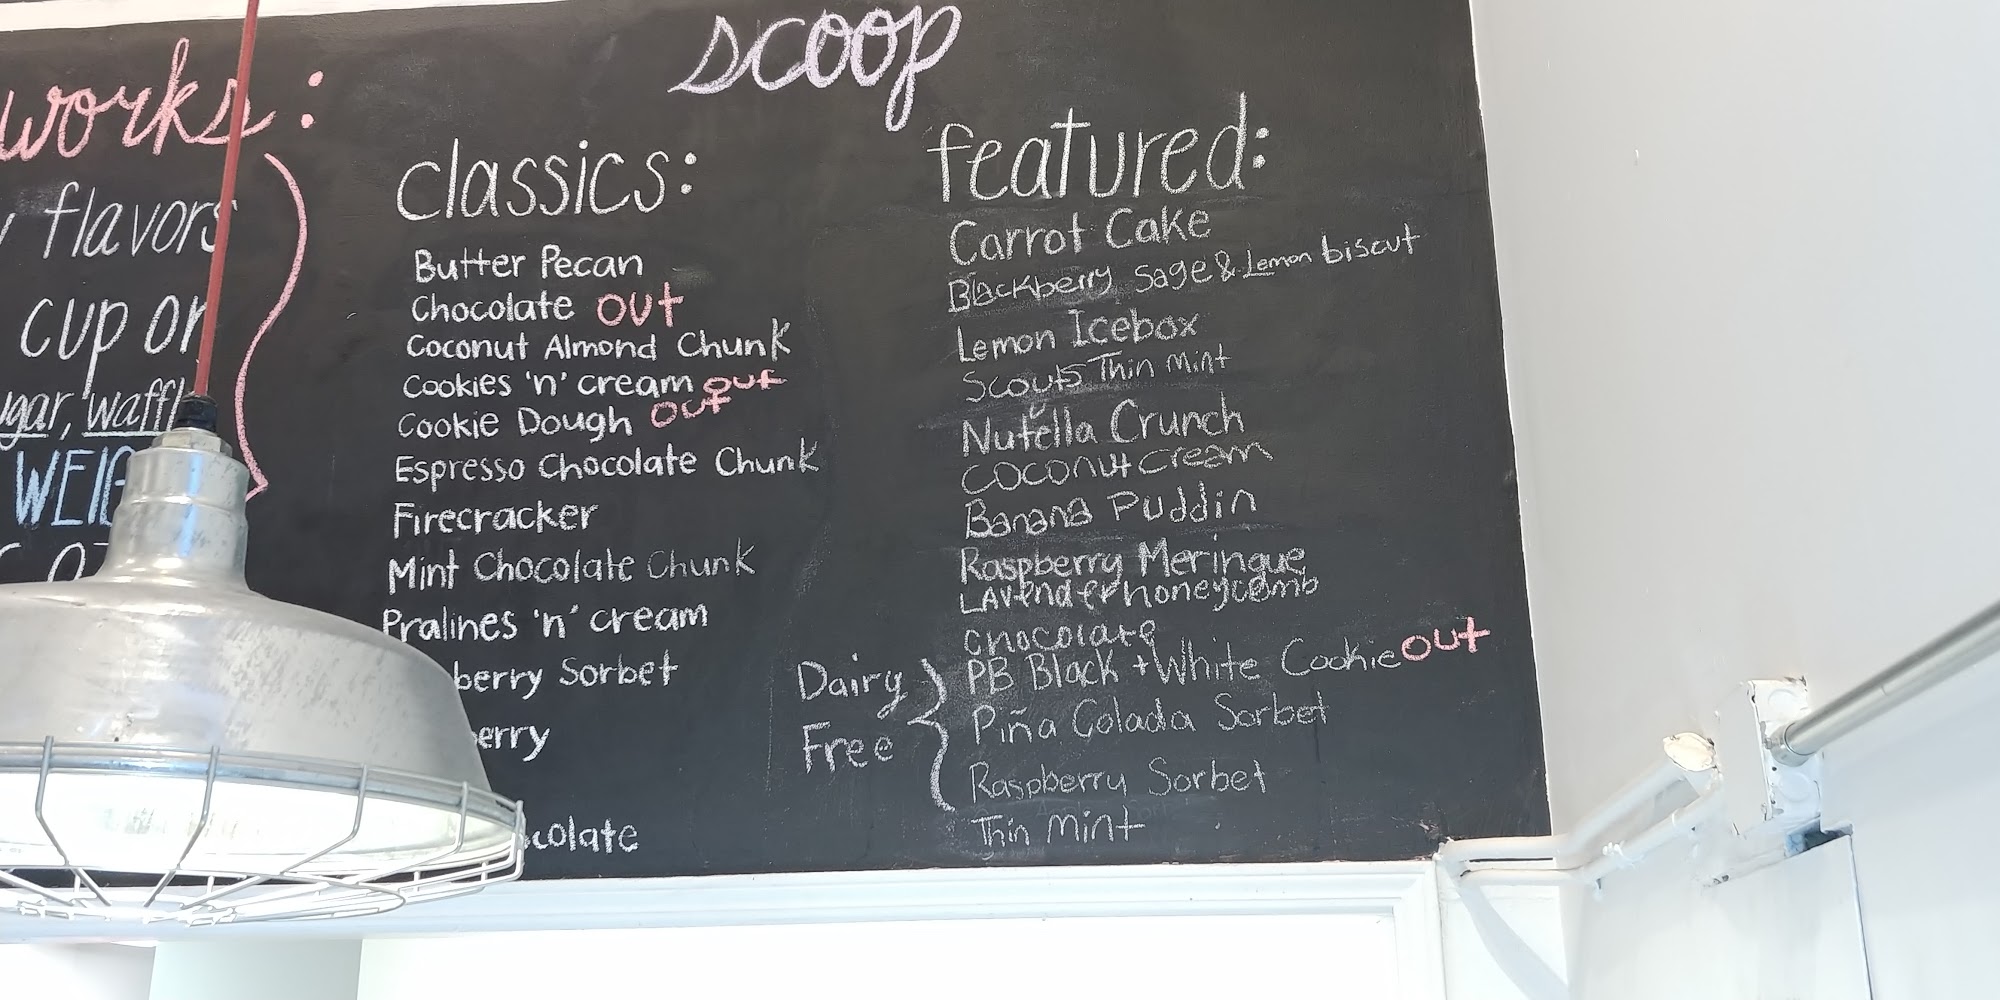 scoop
works:
flavors
cup or
WEIG
classics:
Butter Pecan
Chocolate OUT
Coconut Almond Chunk
Cookies 'n' cream out
Cookie Dough OUT
Espresso Chocolate Chunk
Firecracker
Mint Chocolate Chunk
Pralines 'n' cream
berry Sorbet
erry
colate
featured:
Carrot Cake
Blackberry Sage & Lemon biscut
Lemon Icebox
Scouts Thin Mint
Nutella Crunch
coconut cream
Banana Puddin
Raspberry Meringue
LAvender honeycomb
chocolate
Dairy
Free
PB Black + White Cookie OUT
Piña Colada Sorbet
Raspberry Sorbet
Thin Mint